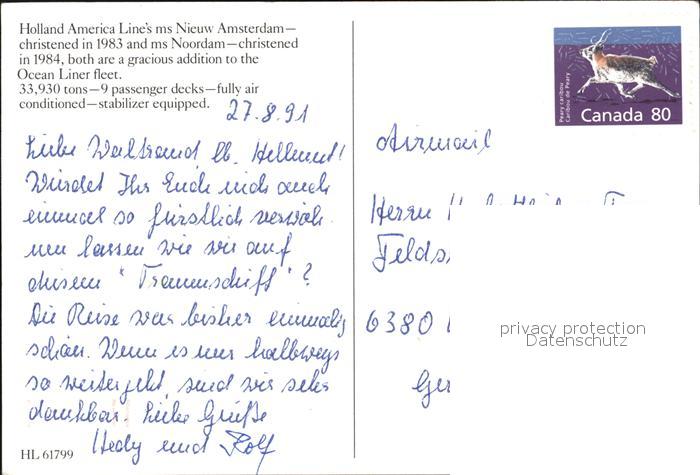 Holland America Line's ms Nieuw Amsterdam—
christened in 1983 and ms Noordam—christened
in 1984, both are a gracious addition to the
Ocean Liner fleet.
33,930 tons—9 passenger decks—fully air
conditioned—stabilizer equipped.
27.8.91
Liebe Waltraud lb. Hellmut!
Würdet Ihr Euch nich auch
einmal so fürstlich verwöh
nen lassen wie wir auf
diesem "Traumschiff"?
Die Reise war bisher einmalig
schön. Wenn es nur halbwegs
so weitergeht, sind wir sehr
dankbar. Liebe Grüße
Hedy und Rolf
HL 61799
Peary caribou
Caribou de Peary
Canada 80
Airmail
Herrn
Felds
6380
Ger
privacy protection
Datenschutz